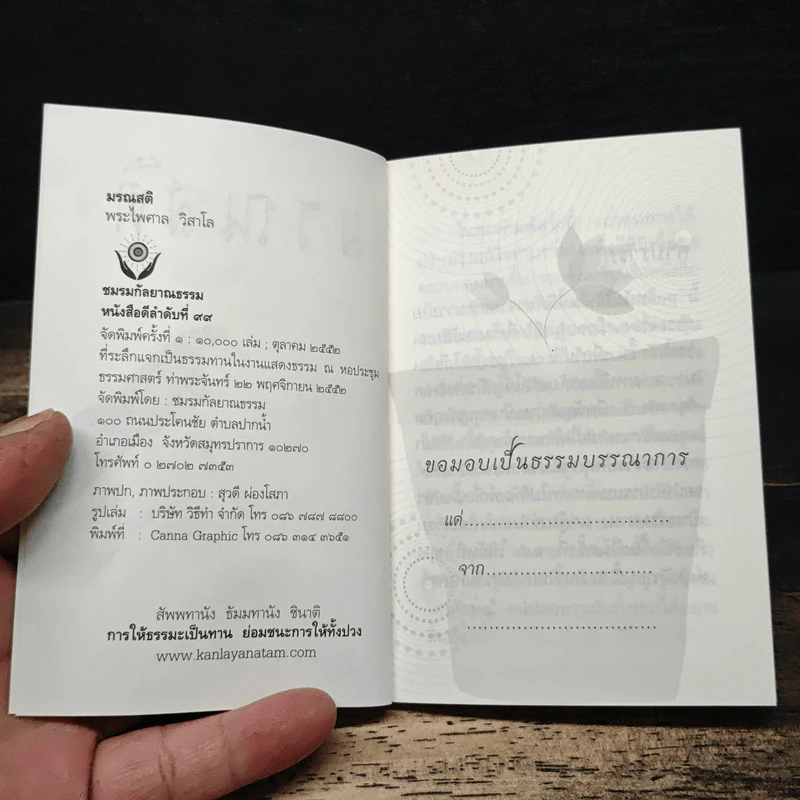 มรณสติ
พระไพศาล วิสาโล
ชมรมกัลยาณธรรม
หนังสือดีลำดับที่ ๙๙
จัดพิมพ์ครั้งที่ ๑ : ๑๐,๐๐๐ เล่ม ; ตุลาคม ๒๕๕๒
ที่ระลึกแจกเป็นธรรมทานในงานแสดงธรรม ณ หอประชุม
ธรรมศาสตร์ ท่าพระจันทร์ ๒๒ พฤศจิกายน ๒๕๕๒
จัดพิมพ์โดย : ชมรมกัลยาณธรรม
๑๐๐ ถนนประโคนชัย ตำบลปากน้ำ
อำเภอเมือง จังหวัดสมุทรปราการ ๑๐๒๗๐
โทรศัพท์ ๐ ๒๗๐๒ ๗๓๕๓
ภาพปก, ภาพประกอบ : สุวดี ผ่องโสภา
รูปเล่ม : บริษัท วิธีทำ จำกัด โทร ๐๘๖ ๗๘๗ ๘๘๐๐
พิมพ์ที่ : Canna Graphic โทร ๐๘๖ ๓๑๔ ๓๖๕๑
สัพพทานัง ธัมมทานัง ชินาติ
การให้ธรรมะเป็นทาน ย่อมชนะการให้ทั้งปวง
www.kanlayanatam.com
ขอมอบเป็นธรรมบรรณาการ
แด่..................................
จาก............................
..................................